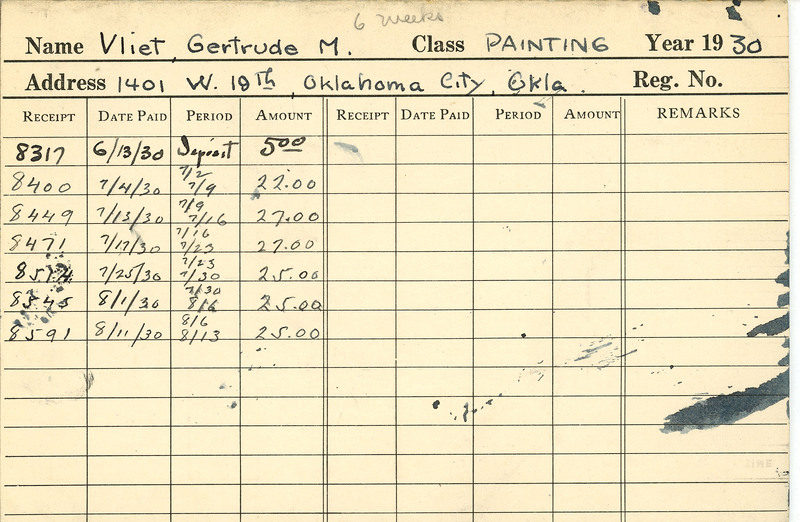 6 weeks
Name Vliet, Gertrude M. Class PAINTING Year 1930
Address 1401 W. 19th, Oklahoma City, Okla. Reg. No.
RECEIPT DATE PAID PERIOD AMOUNT RECEIPT DATE PAID PERIOD AMOUNT REMARKS
8317 6/13/30 Deposit 5.00
8400 7/4/30 7/2 7/9 22.00
8449 7/13/30 7/9 7/16 27.00
8471 7/17/30 7/16 7/23 27.00
7/25/30 7/23 7/30 25.00
8545 8/1/30 7/30 8/6 25.00
8591 8/11/30 8/6 8/13 25.00